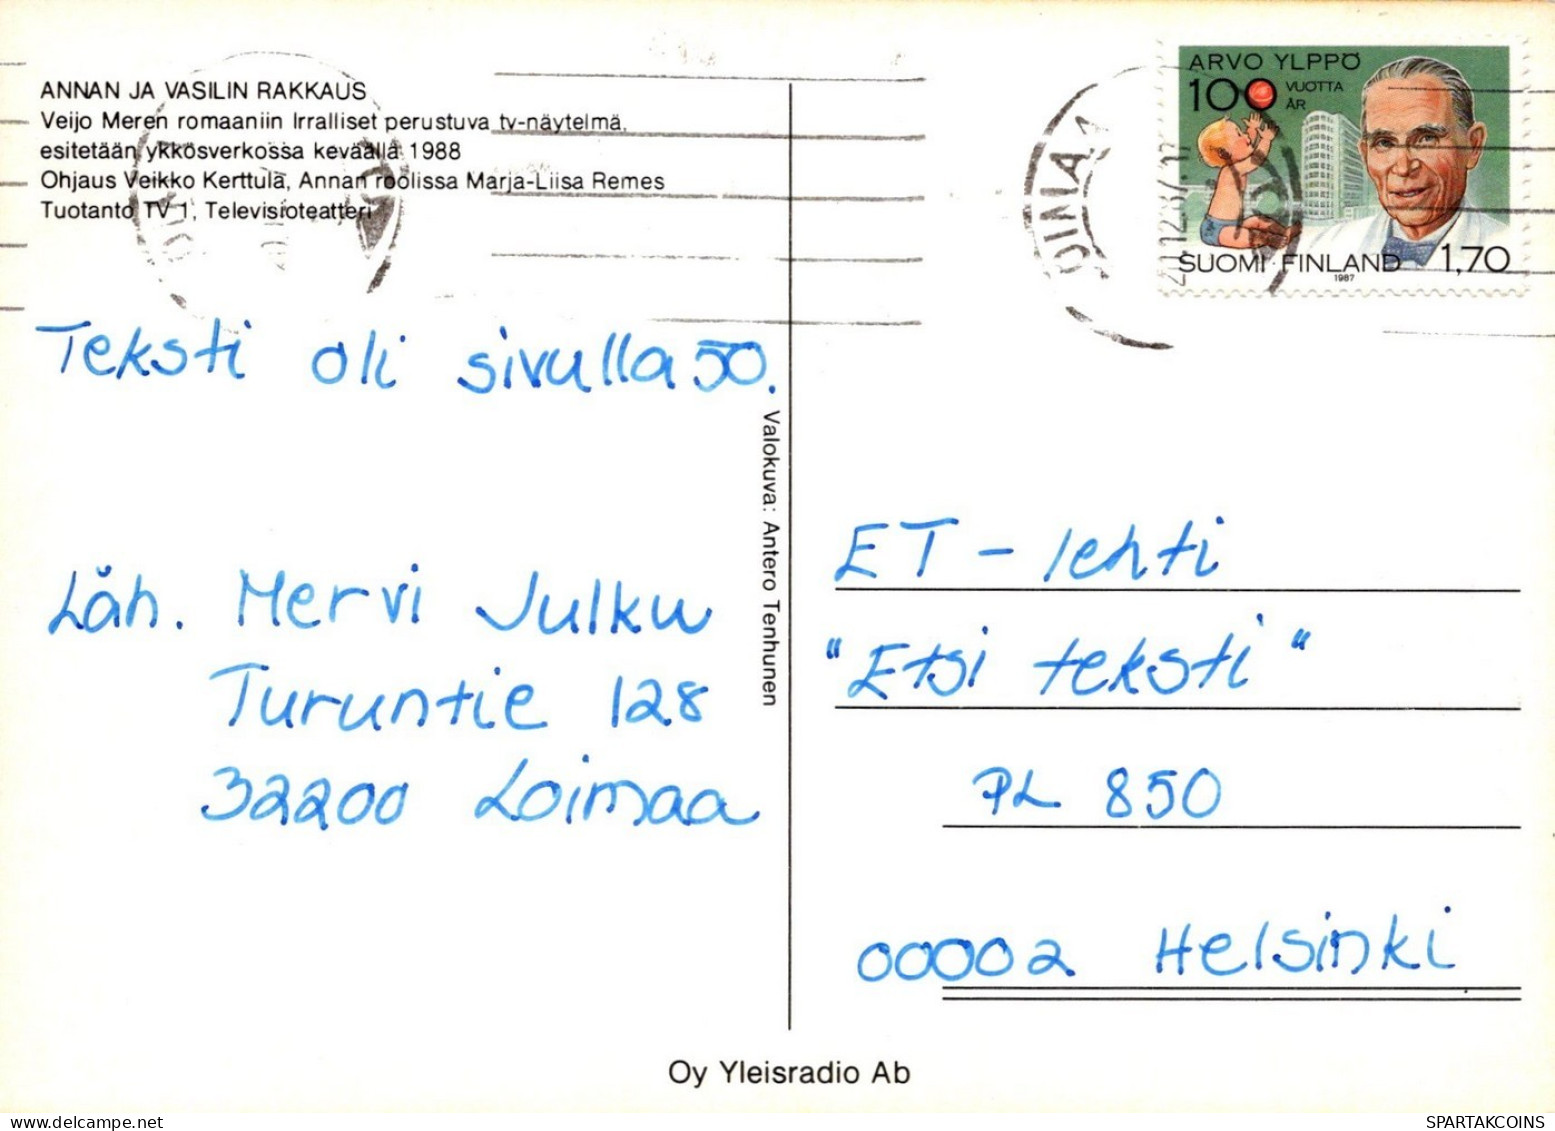 ANNAN JA VASILIN RAKKAUS
Veijo Meren romaaniin Irralliset perustuva tv-näytelmä,
esitetään ykkösverkossa keväällä 1988
Ohjaus Veikko Kerttula, Annan roolissa Marja-Liisa Remes
Tuotanto TV 1, Televisioteatteri
ARVO YLPPÖ
100 VUOTTA
ÅR
SUOMI FINLAND 1,70
1987
Teksti oli sivulla 50.
Läh. Mervi Julku
Turuntie 128
32200 Loimaa
Valokuva: Antero Tenhunen
ET - lehti
"Etsi teksti"
PL 850
00002 Helsinki
Oy Yleisradio Ab
SPARTAKCOINS